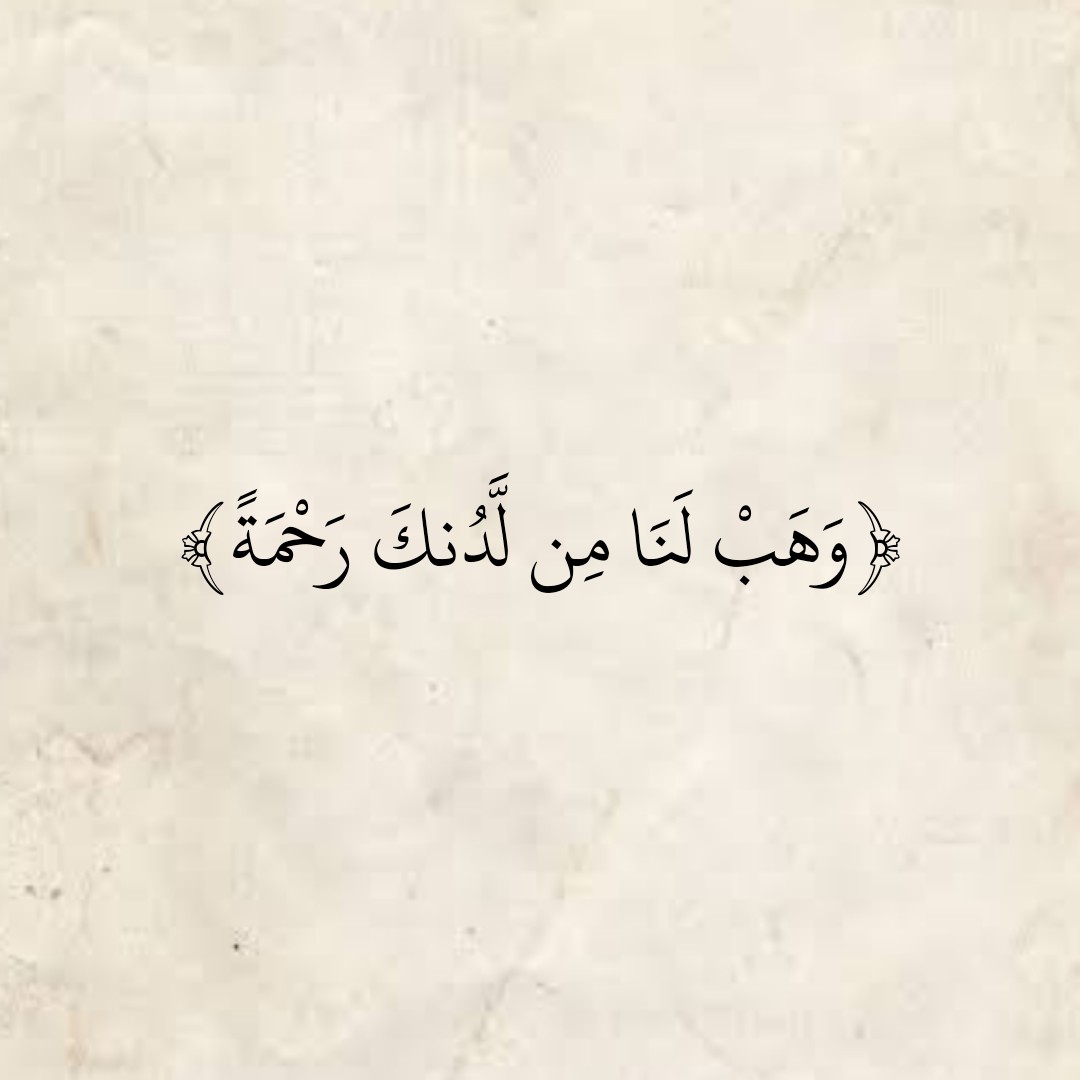 ﴿وَهَبْ لَنَا مِن لَّدُنكَ رَحْمَةً﴾